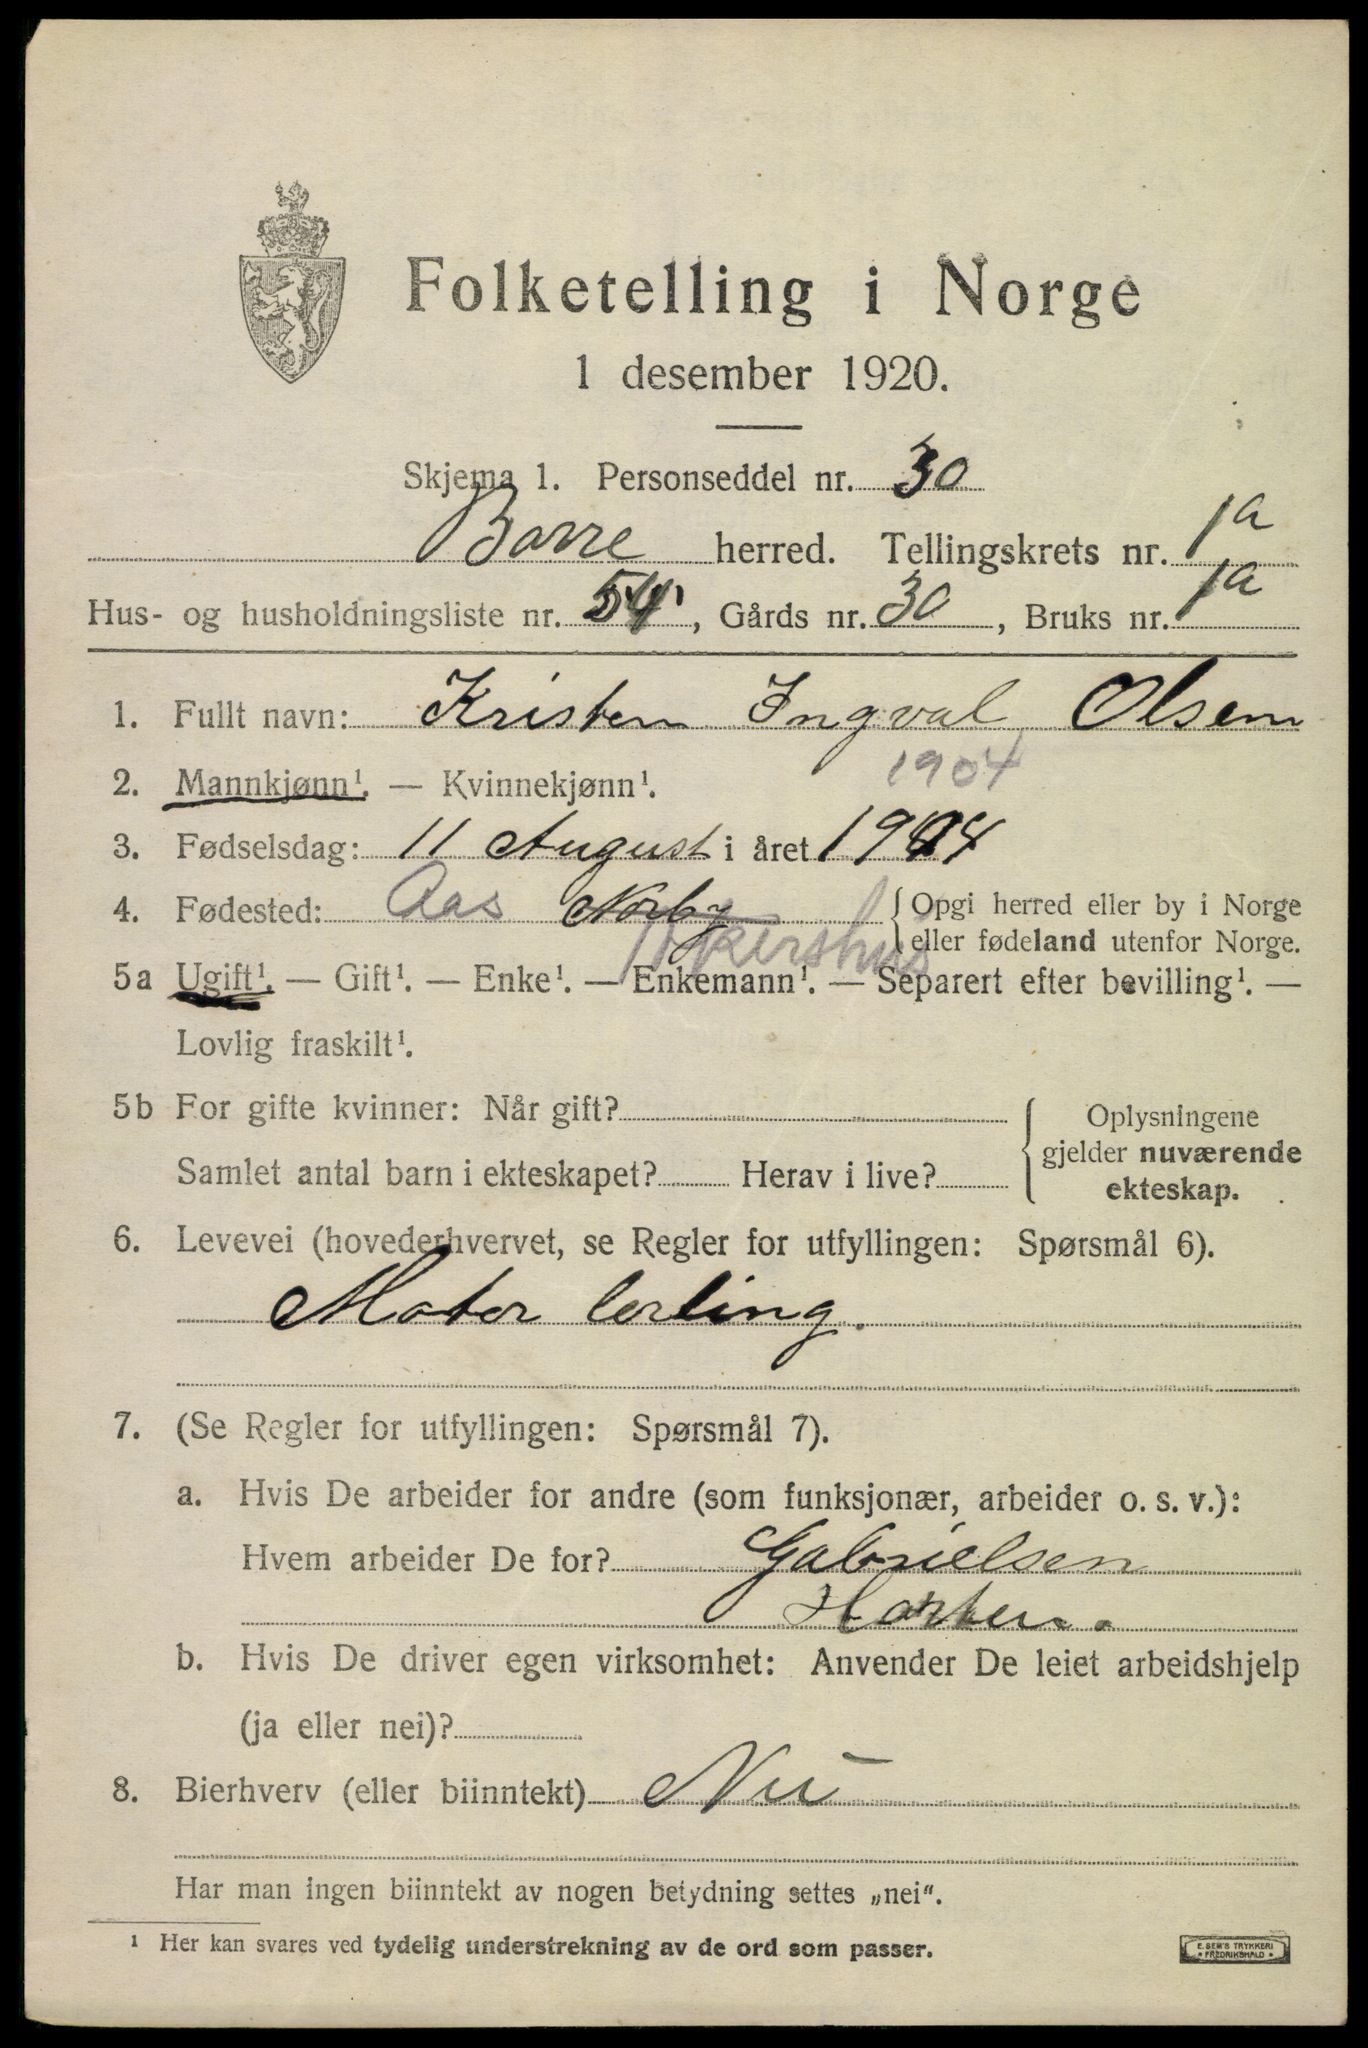 Folketelling i Norge
1 desember 1920.
Skjema 1. Personseddel nr. 30
Borre herred. Tellingskrets nr. 1a
Hus- og husholdningsliste nr. 54, Gårds nr. 30, Bruks nr. 1a
1. Fullt navn: Kristen Ingval Olsen
2. Mannkjønn¹. — Kvinnekjønn¹. 1904
3. Fødselsdag: 11 August i året 1904
4. Fødested: Aas Norby { Opgi herred eller by i Norge
eller fødeland utenfor Norge.
Akershus
5a Ugift¹. — Gift¹. — Enke¹. — Enkemann¹. — Separert efter bevilling¹. —
Lovlig fraskilt¹.
5b For gifte kvinner: Når gift? { Oplysningene
gjelder nuværende
Samlet antal barn i ekteskapet? Herav i live? ekteskap.
6. Levevei (hovederhvervet, se Regler for utfyllingen: Spørsmål 6).
Motor lerling.
7. (Se Regler for utfyllingen: Spørsmål 7).
a. Hvis De arbeider for andre (som funksjonær, arbeider o. s. v.):
Hvem arbeider De for? Gabrielsen
Horten.
b. Hvis De driver egen virksomhet: Anvender De leiet arbeidshjelp
(ja eller nei)?
8. Bierhverv (eller biinntekt) Nei
Har man ingen biinntekt av nogen betydning settes „nei“.
¹ Her kan svares ved tydelig understrekning av de ord som passer.
E. SEM'S TRYKKERI
FREDRIKSHALD